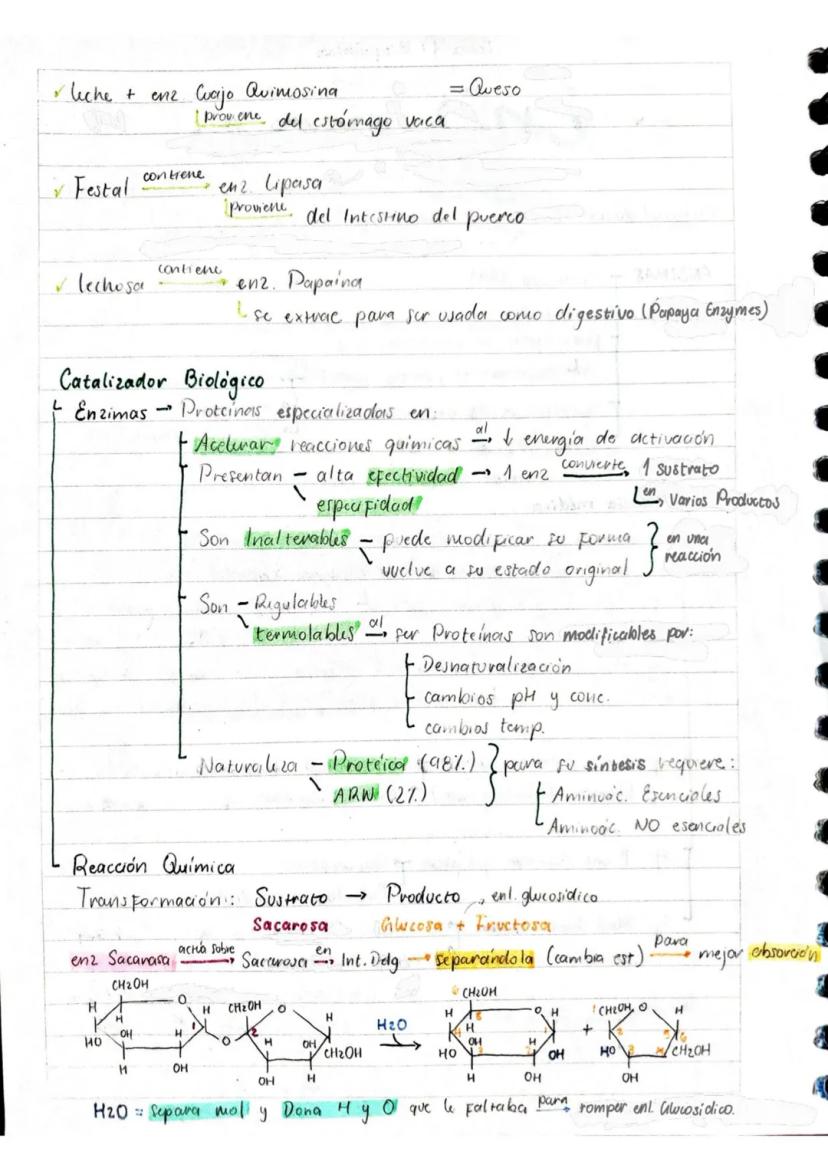 ✓ leche + enz Cuajo Quimosina = Queso
proviene del estómago vaca
✓ Festal contiene → enz Lipasa
proviene del Intestino del puerco
✓ lechosa contiene → enz. Papaína
se extrae para ser usada como digestivo (Papaya Enzymes)
Catalizador Biológico
Enzimas → Proteínas especializadas en:
Acelerar reacciones químicas al → ↓ energía de activación
Presentan – alta efectividad → 1 enz convierte 1 sustrato
especifidad en → Varios Productos
Son Inalterables – puede modificar su forma } en una
vuelve a su estado original reacción
Son – Regulables
termolables al → ser Proteínas son modificables por:
Desnaturalización
cambios pH y conc.
cambios temp.
Naturaleza – Protéica (98%) } para su síntesis requiere:
ARN (2%) Aminoác. Esenciales
Aminoác. NO esenciales
Reacción Química
Transformación: Sustrato → Producto enl. glucosídico
Sacarosa Glucosa + Fructosa
enz Sacarasa actúa sobre → Sacarosa en → Int. Delg → separándola (cambia est) para → mejor absorción
CH2OH O H CH2OH O H H2O CH2OH O H + CH2OH O H
H H OH H 1 O 2 H OH CH2OH H H OH H 1 2 CH2OH
HO H OH OH H HO H OH OH HO OH
H2O = separa mol y Dona H y O que le faltaba para → romper enl. Glucosídico.